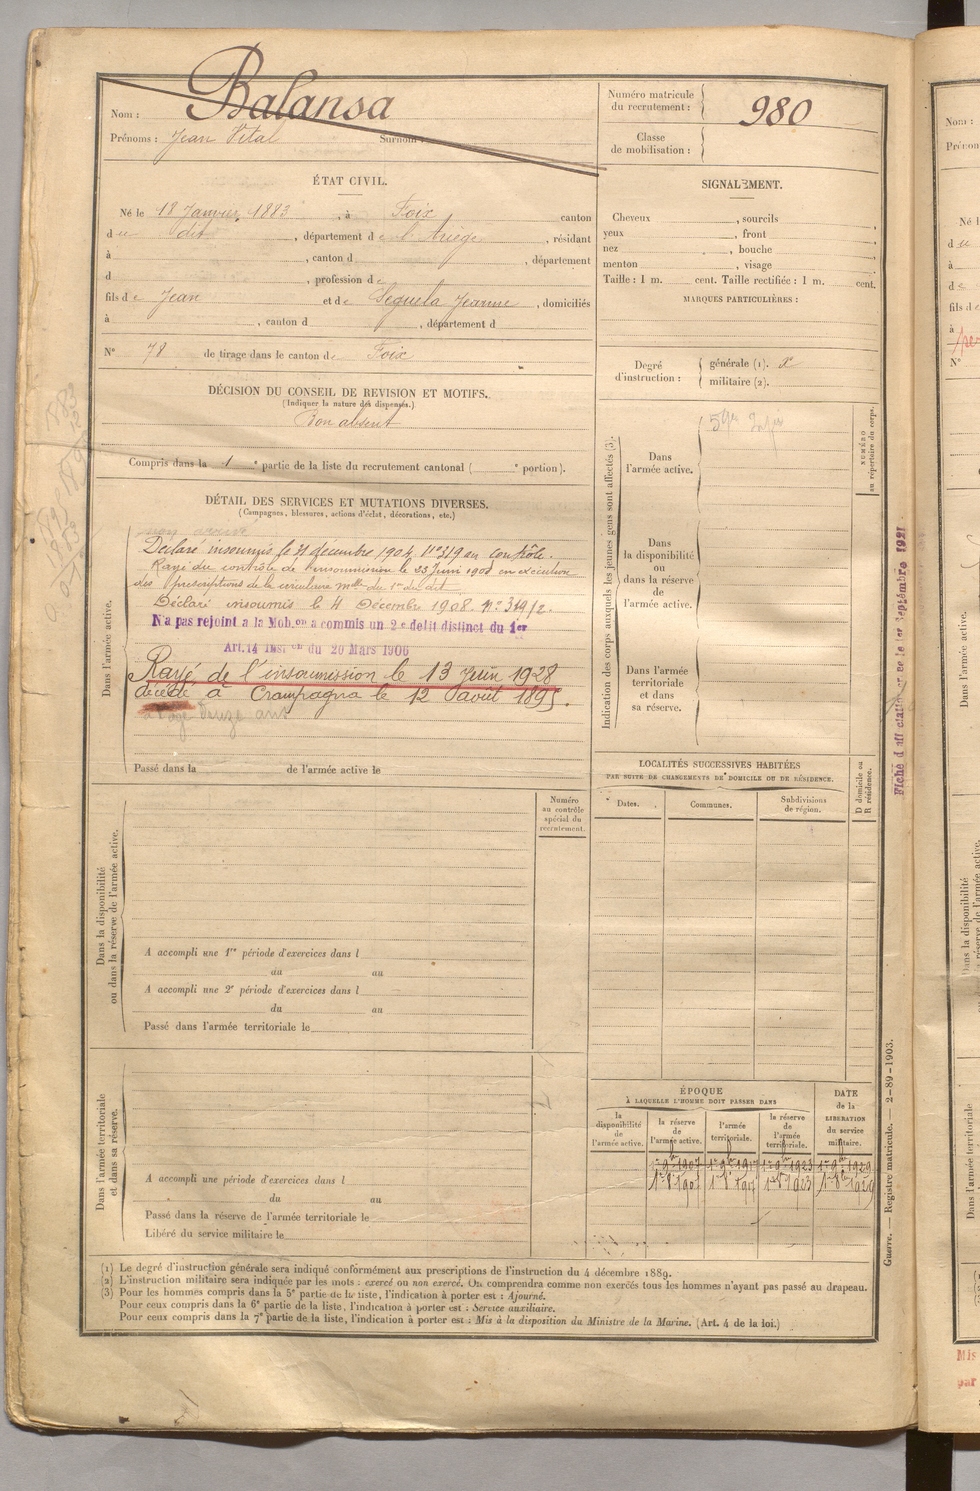 Nom : Balansa
Prénoms : Jean Vital Surnom :
Numéro matricule du recrutement : 980
Classe de mobilisation :
ÉTAT CIVIL.
Né le 18 Janvier 1883, à Foix canton
du dit, département de l'Ariège, résidant
à , canton d , département
d , profession de
fils de Jean et de Seguela Jeanne, domiciliés
à , canton d , département d
N° 78 de tirage dans le canton de Foix
DÉCISION DU CONSEIL DE REVISION ET MOTIFS.
(Indiquer la nature des dispenses.)
Bon absent
Compris dans la 1e partie de la liste du recrutement cantonal ( e portion).
DÉTAIL DES SERVICES ET MUTATIONS DIVERSES.
(Campagnes, blessures, actions d'éclat, décorations, etc.)
Dans l'armée active.
Déclaré insoumis le 21 décembre 1904 n° 319 au contrôle.
Rayé du contrôle de l'insoumission le 23 Juin 1908 en exécution
des prescriptions de la circulaire mlle du 1er du dit
Déclaré insoumis le 4 Décembre 1908. n° 319/2.
N'a pas rejoint a la Mob.on a commis un 2e delit distinct du 1er
Art.14 Inst.on du 20 Mars 1906
Rayé de l'insoumission le 13 Juin 1928
décédé à Crampagna le 12 août 1895.
Passé dans la de l'armée active le
SIGNALEMENT.
Cheveux , sourcils
yeux , front
nez , bouche
menton , visage
Taille : 1 m. cent. Taille rectifiée : 1 m. cent.
MARQUES PARTICULIÈRES :
Degré d'instruction :
générale (1). x
militaire (2).
Indication des corps auxquels les jeunes gens sont affectés (3).
NUMÉRO
au répertoire du corps.
Dans
l'armée active.
59e Infie
Dans
la disponibilité
ou
dans la réserve
de
l'armée active.
Dans l'armée
territoriale
et dans
sa réserve.
LOCALITÉS SUCCESSIVES HABITÉES
PAR SUITE DE CHANGEMENTS DE DOMICILE OU DE RÉSIDENCE.
Dates.
Communes.
Subdivisions
de région.
D domicile ou
R résidence.
Dans la disponibilité
ou dans la réserve de l'armée active.
Numéro
au contrôle
spécial du
recrutement.
A accompli une 1re période d'exercices dans l
du au
A accompli une 2e période d'exercices dans l
du au
Passé dans l'armée territoriale le
Dans l'armée territoriale
et dans sa réserve.
A accompli une période d'exercices dans l
du au
Passé dans la réserve de l'armée territoriale le
Libéré du service militaire le
ÉPOQUE
À LAQUELLE L'HOMME DOIT PASSER DANS
la
disponibilité
de
l'armée active.
la réserve
de
l'armée active.
l'armée
territoriale.
la réserve
de
l'armée
territoriale.
DATE
de la
LIBÉRATION
du service
militaire.
Guerre. — Registre matricule. — 2-89-1903.
(1) Le degré d'instruction générale sera indiqué conformément aux prescriptions de l'instruction du 4 décembre 1889.
(2) L'instruction militaire sera indiquée par les mots : exercé ou non exercé. On comprendra comme non exercés tous les hommes n'ayant pas passé au drapeau.
(3) Pour les hommes compris dans la 5e partie de la liste, l'indication à porter est : Ajourné.
Pour ceux compris dans la 6e partie de la liste, l'indication à porter est : Service auxiliaire.
Pour ceux compris dans la 7e partie de la liste, l'indication à porter est : Mis à la disposition du Ministre de la Marine. (Art. 4 de la loi.)